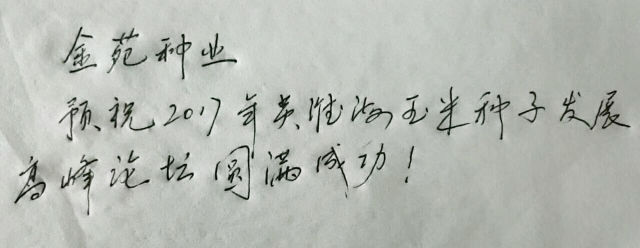 金苑种业
预祝2017年黄淮海玉米种子发展
高峰论坛圆满成功！